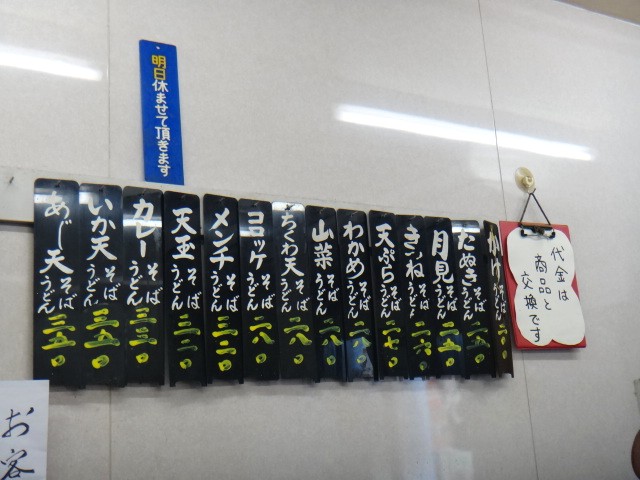 明日休ませて頂きます
かけ そば うどん
たぬき そば うどん 二五〇
月見 そば うどん 二五〇
きつね そば うどん 二六〇
天ぷら そば うどん 二七〇
わかめ そば うどん 二八〇
山菜 そば うどん 二八〇
ちくわ天 そば うどん 二八〇
コロッケ そば うどん 二八〇
メンチ そば うどん 三二〇
天玉 そば うどん 三二〇
カレー そば うどん 三三〇
いか天 そば うどん 三五〇
あじ天 そば うどん 三五〇
代金は
商品と
交換です
お客